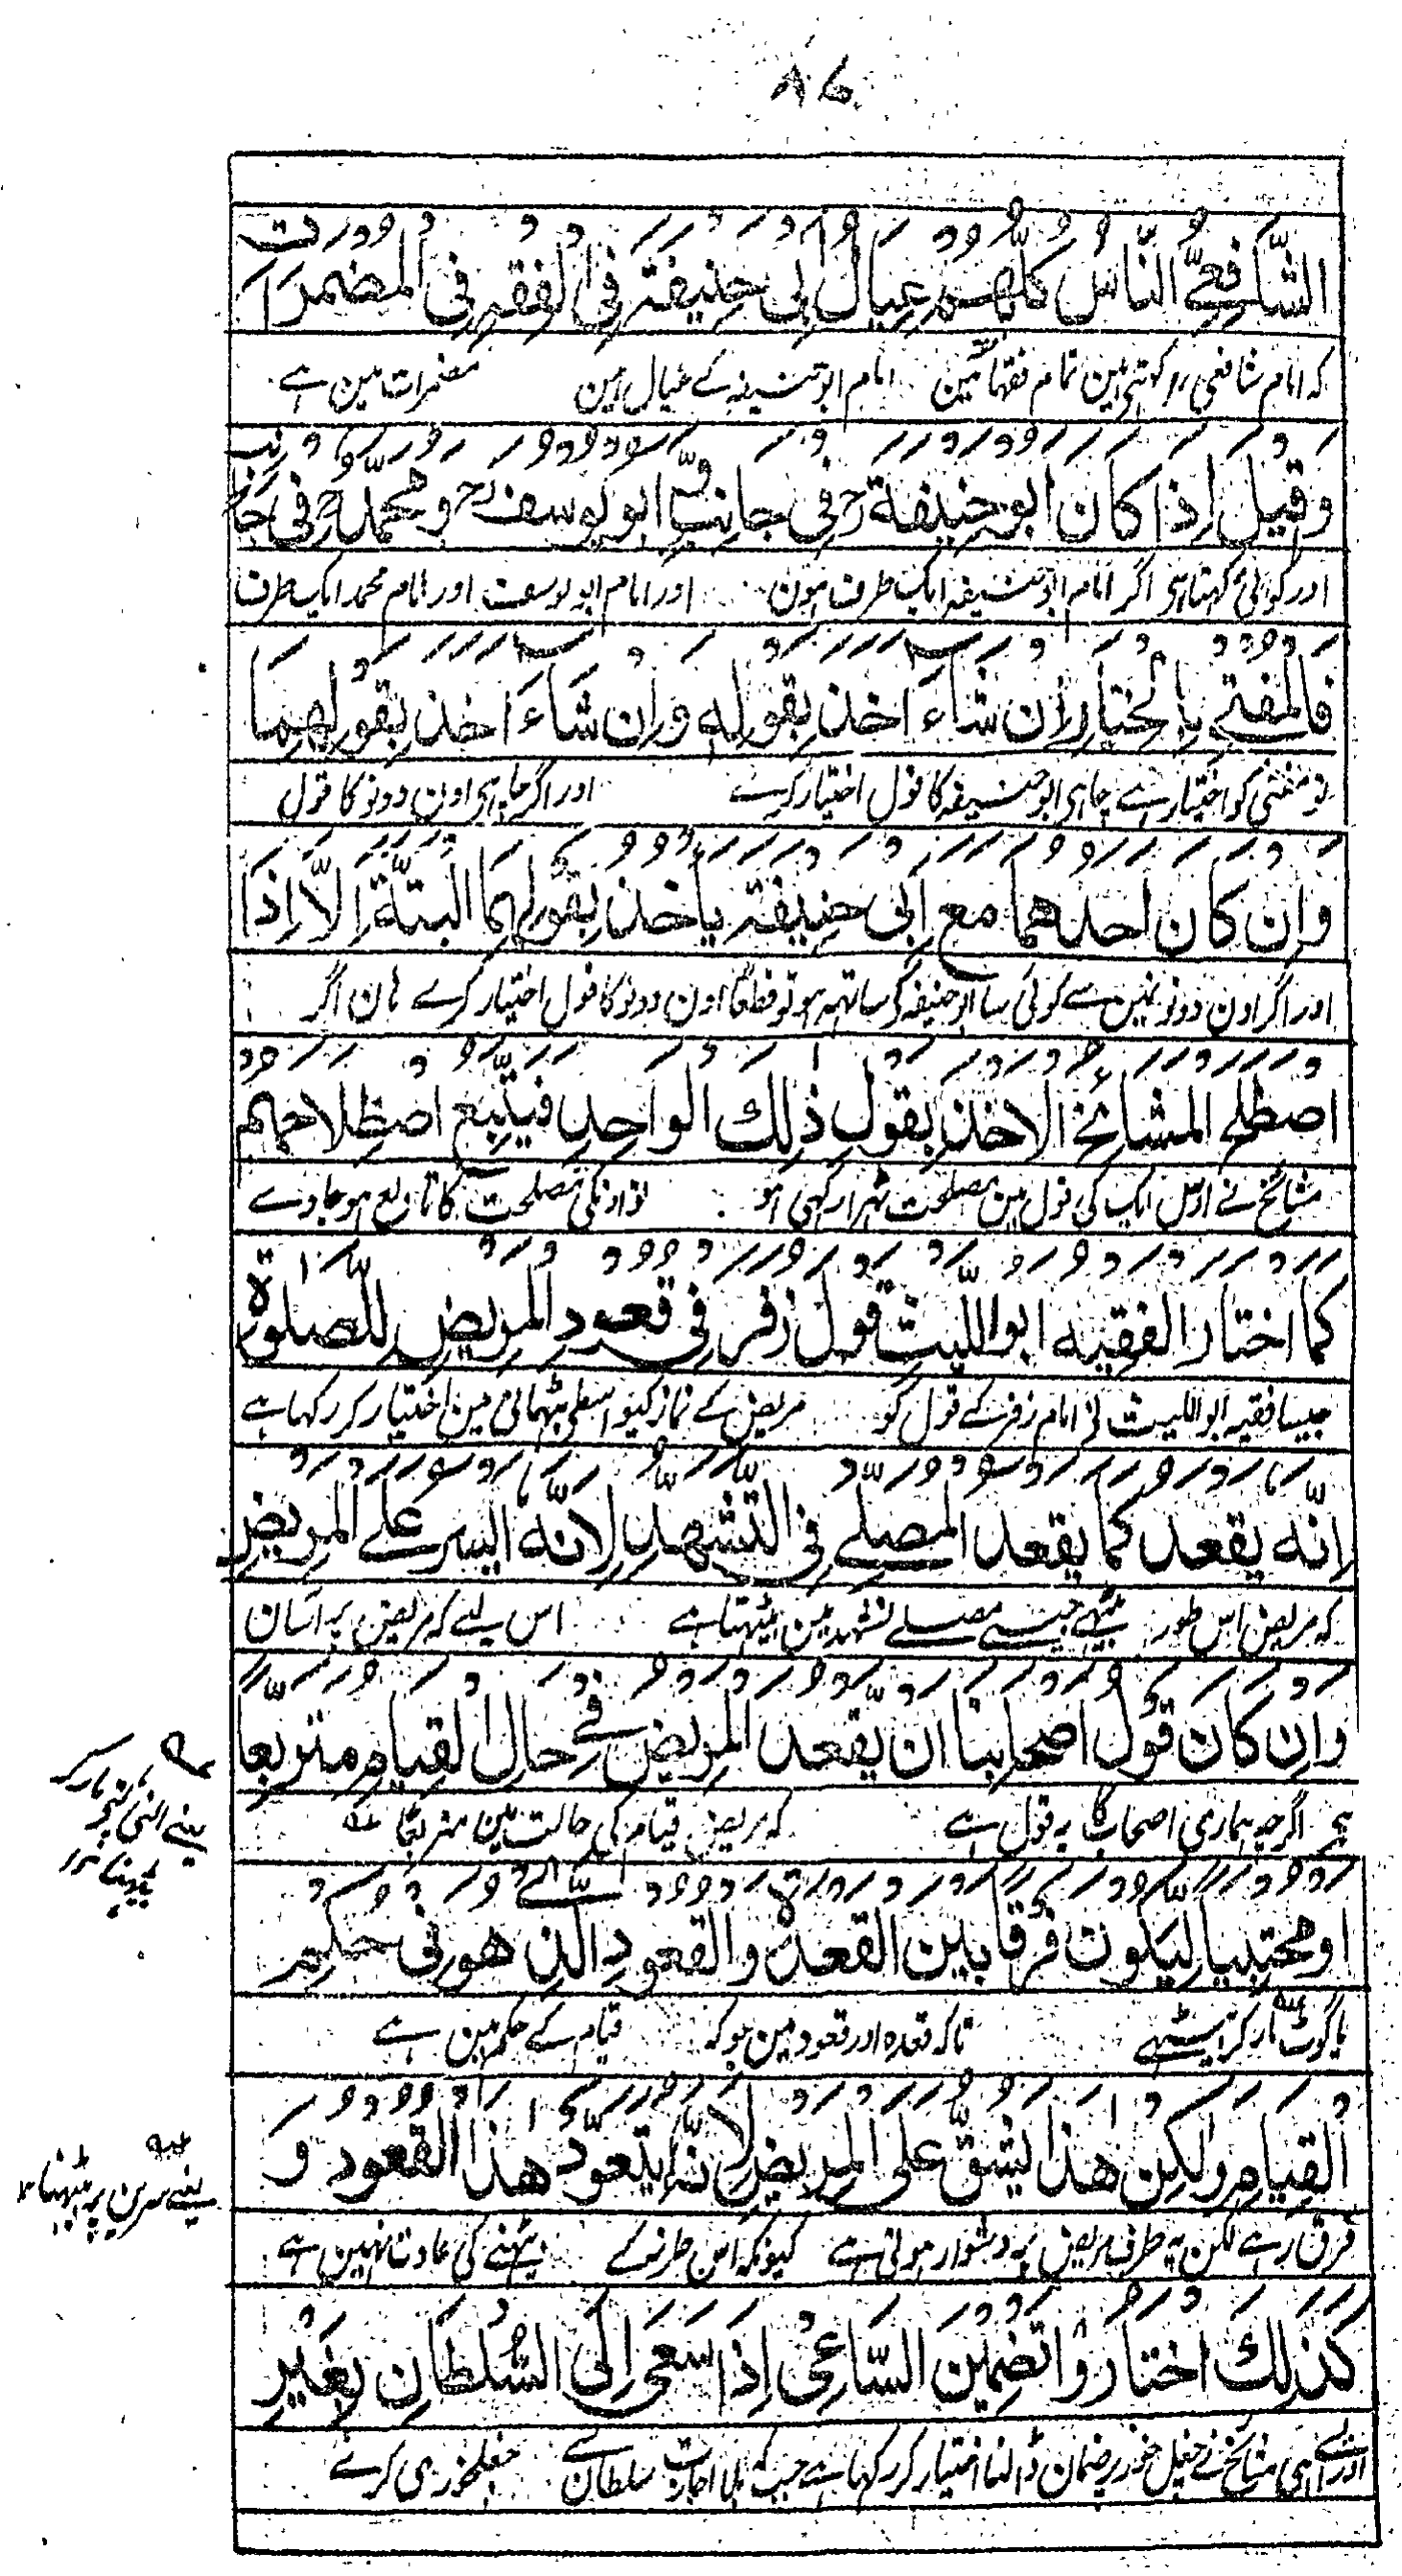 ٨٦
الشَّافِعِيُّ النَّاسُ كُلُّهُمْ عِيَالُ اَبِى حَنِيفَةَ فِى الْفِقْهِ فِى الْمُضْمَرَاتِ
کہ امام شافعی رہ کہتی ہین تمام فقہا مین امام ابو حنیفہ کے عیال ہین مضمرات مین ہے
وَقِيلَ اِذَا كَانَ اَبُوحَنِيفَةَ رح فِى جَانِبٍ وَّاَبُويُوسُفَ رح وَمُحَمَّدٌ رح فِى جَانِبٍ
اور کوئی کہتا ہی اگر امام ابو حنیفہ ایک طرف ہون اور امام ابو یوسف اور امام محمد ایک طرف
فَالْمُفْتِى بِالْخِيَارِ اِنْ شَاءَ اَخَذَ بِقَوْلِهٖ وَاِنْ شَاءَ اَخَذَ بِقَوْلِهِمَا
تو مفتی کو اختیار ہے چاہی ابو حنیفہ کا قول اختیار کرے اور اگر چاہی اون دونو کا قول
وَاِنْ كَانَ اَحَدُهُمَا مَعَ اَبِى حَنِيفَةَ يَأْخُذُ بِقَوْلِهِمَا الْبَتَّةَ اِلَّا اِذَا
اور اگر اون دونو نمین سے کوئی سا ابو حنیفہ کی ساتہہ ہو تو قطعًا اون دونو کا قول اختیار کرے ہان اگر
اصْطَلَحَ الْمَشَائِخُ الْاَخْذَ بِقَوْلِ ذٰلِكَ الْوَاحِدِ فَيَتَّبِعُ اصْطِلَاحَهُمْ
مشائخ نے اوس ایک کی قول مین مصلحت ٹہرا رکہی ہو تو اونکی مصلحت کا تابع ہو جاوے
كَمَا اخْتَارَ الْفَقِيهُ اَبُو اللَّيْثِ قَوْلَ زُفَرَ فِى قُعُودِ الْمَرِيْضِ لِلصَّلٰوةِ
جیسا فقیہ ابو اللیث نی امام زفر کے قول کو مریض کے نماز کیو اسطی بٹہانی مین اختیار کر رکہا ہے
اِنَّهٗ يَقْعُدُ كَمَا يَقْعُدُ الْمُصَلِّى فِى التَّشَهُّدِ لِاَنَّهٗ اَيْسَرُ عَلَى الْمَرِيْضِ
کہ مریض اس طور بیٹہے جیسے مصلے تشہد مین بیٹہتا ہے اس لیے کہ مریض پر آسان
وَاِنْ كَانَ قَوْلُ اَصْحَابِنَا اَنْ يَّقْعُدَ الْمَرِيْضُ فِى حَالِ الْقِيَامِ مُتَرَبِّعًا
ہی اگرچہ ہماری اصحاب کا یہ قول ہے کہ مریض قیام کی حالت مین متربعًا
اَوْ مُحْتَبِيًا لِيَكُونَ فَرْقًا بَيْنَ الْقَعْدَةِ وَالْقُعُودِ الَّذِى هُوَ فِى حُكْمِ
یا گوٹ مار کر بیٹہے تاکہ قعدہ اور قعود مین جو کہ قیام کے حکم مین ہے
الْقِيَامِ وَلٰكِنْ هٰذَا يَشُقُّ عَلَى الْمَرِيْضِ لِاَنَّهٗ لَا يَتَعَوَّدُ هٰذَا الْقُعُودَ وَ
فرق رہے لکن یہ طرف مریض پر دشوار ہوتی ہے کیونکہ اس طرز کے بیٹہنے کی عادت نہین ہے
كَذٰلِكَ اخْتَارُوْا تَضْمِيْنَ السَّاعِى اِذَا سَعٰى اِلَى السُّلْطَانِ بِغَيْرِ
اور ایسے ہی مشائخ نے چغل خور پر ضمان ڈالنا اختیار کر رکہا ہے جب کہ بلا اجازت سلطان سے چغلخوری کرے
یعنے سرین پر بیٹہنا